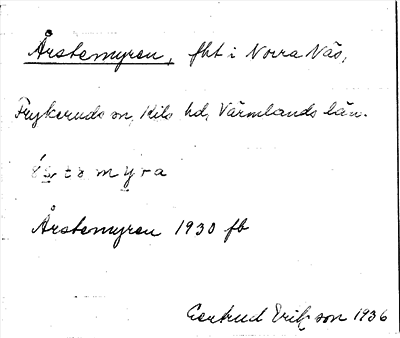 Årstemyren, fht i Norra Näs,
Frykeruds sn, Kils hd, Värmlands län.
myra
Årstemyren 1930 fb
Gertrud Erikson 1936